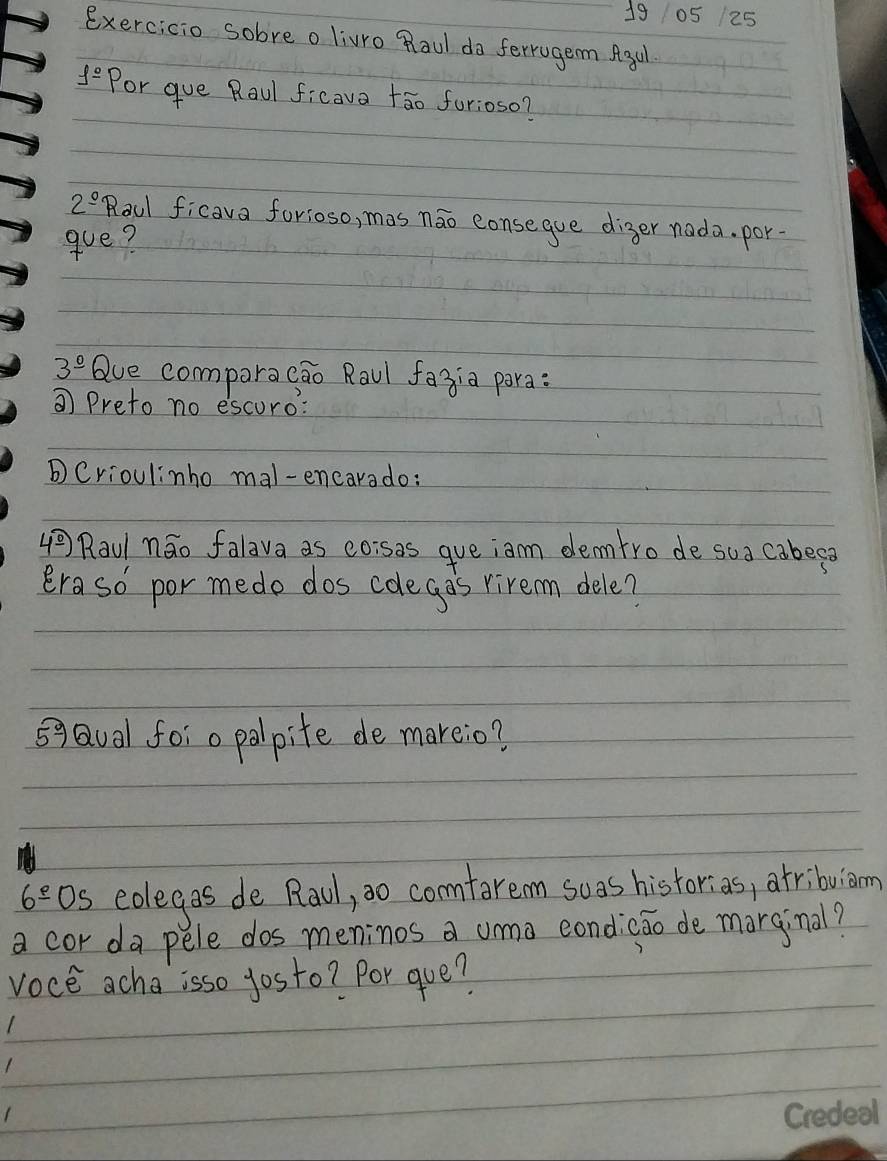 19/05/25
Exercicio sobre o livro Raul da ferrugem Azul.
1º Por que Raul ficava tão furioso?
2º Raul ficava furioso, mas não consegue dizer nada. por-
que?
3º Que comparação Raul fazia para:
a) Preto no escuro:
b) Crioulinho mal-encarado:
4º) Raul não falava as coisas que iam demtro de sua cabeça
Era só por medo dos colegas rirem dele?
5º) Qual foi o palpite de marcio?
6º Os colegas de Raul, ao comtarem suas historias, atribuiam
a cor da pele dos meninos a uma condição de marginal?
Você acha isso josto? Por que?
Credeal